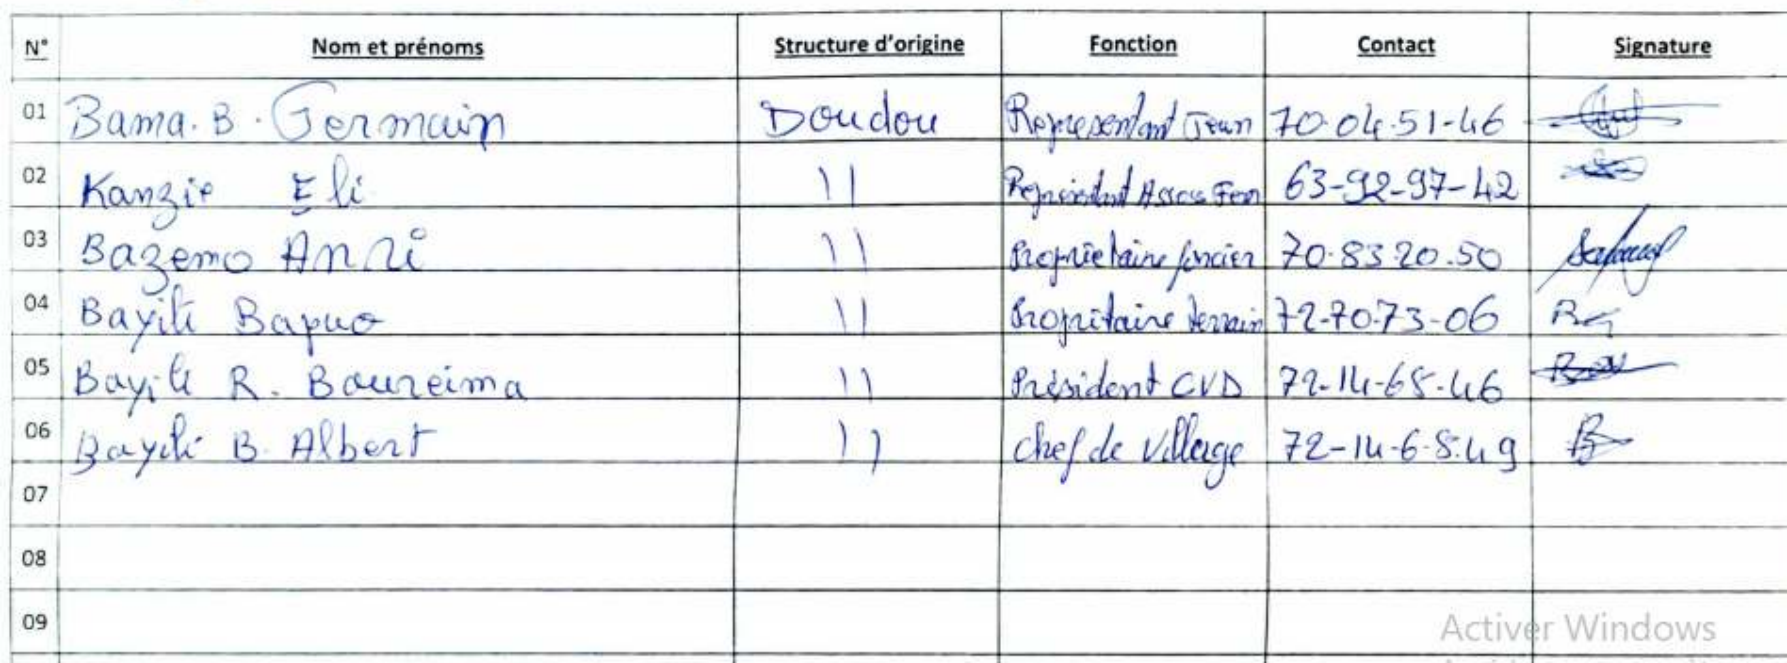 N° Nom et prénoms Structure d'origine Fonction Contact Signature
01 Bama. B. Germain Doudou Representant Jeun 70-04-51-46
02 Kanzie Eli 11 Représentant Assoss Fem 63-92-97-42
03 Bazemo Anri 11 Proprietaire foncier 70-83.20.50
04 Bayili Bapuo 11 Propritaire terrain 72-70-73-06
05 Bayili R. Boureima 11 Président CVD 72-14-65-46
06 Bayili B. Albert 11 chef de village 72-14-6-5.49
07
08
09
Activer Windows